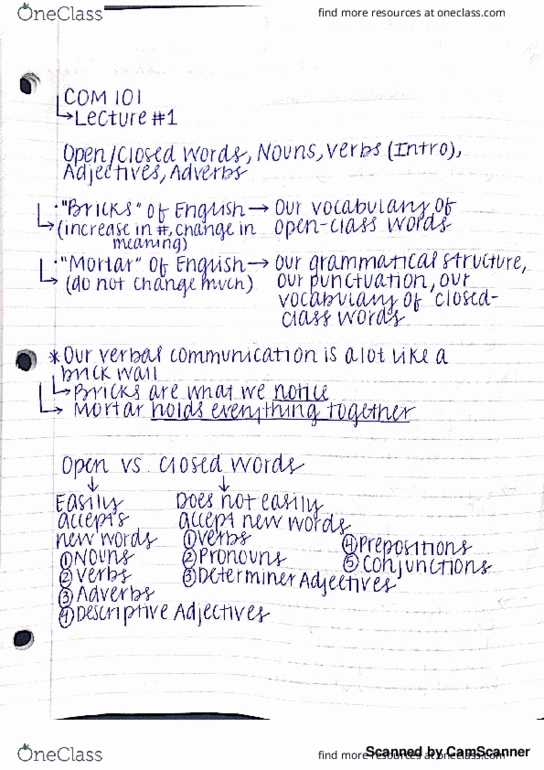 OneClass
find more resources at oneclass.com
COM 101
↳Lecture #1
Open/Closed Words, Nouns, Verbs (Intro),
Adjectives, Adverbs
• "Bricks" of English → Our vocabulary of
(increase in #, change in open-class words
meaning)
• "Mortar" of English → Our grammatical structure,
(do not change much) our punctuation, our
vocabulary of closed-
class words
* Our verbal communication is alot like a
brick wall
↳ Bricks are what we notice
↳ Mortar holds everything together
Open vs. Closed Words
↓ ↓
Easily Does not easily
accepts accept new words
new words ① Verbs ④ Prepositions
① Nouns ② Pronouns ⑤ Conjunctions
② Verbs ③ Determiner Adjectives
③ Adverbs
④ Descriptive Adjectives
OneClass
find more resources at oneclass.com
Scanned by CamScanner